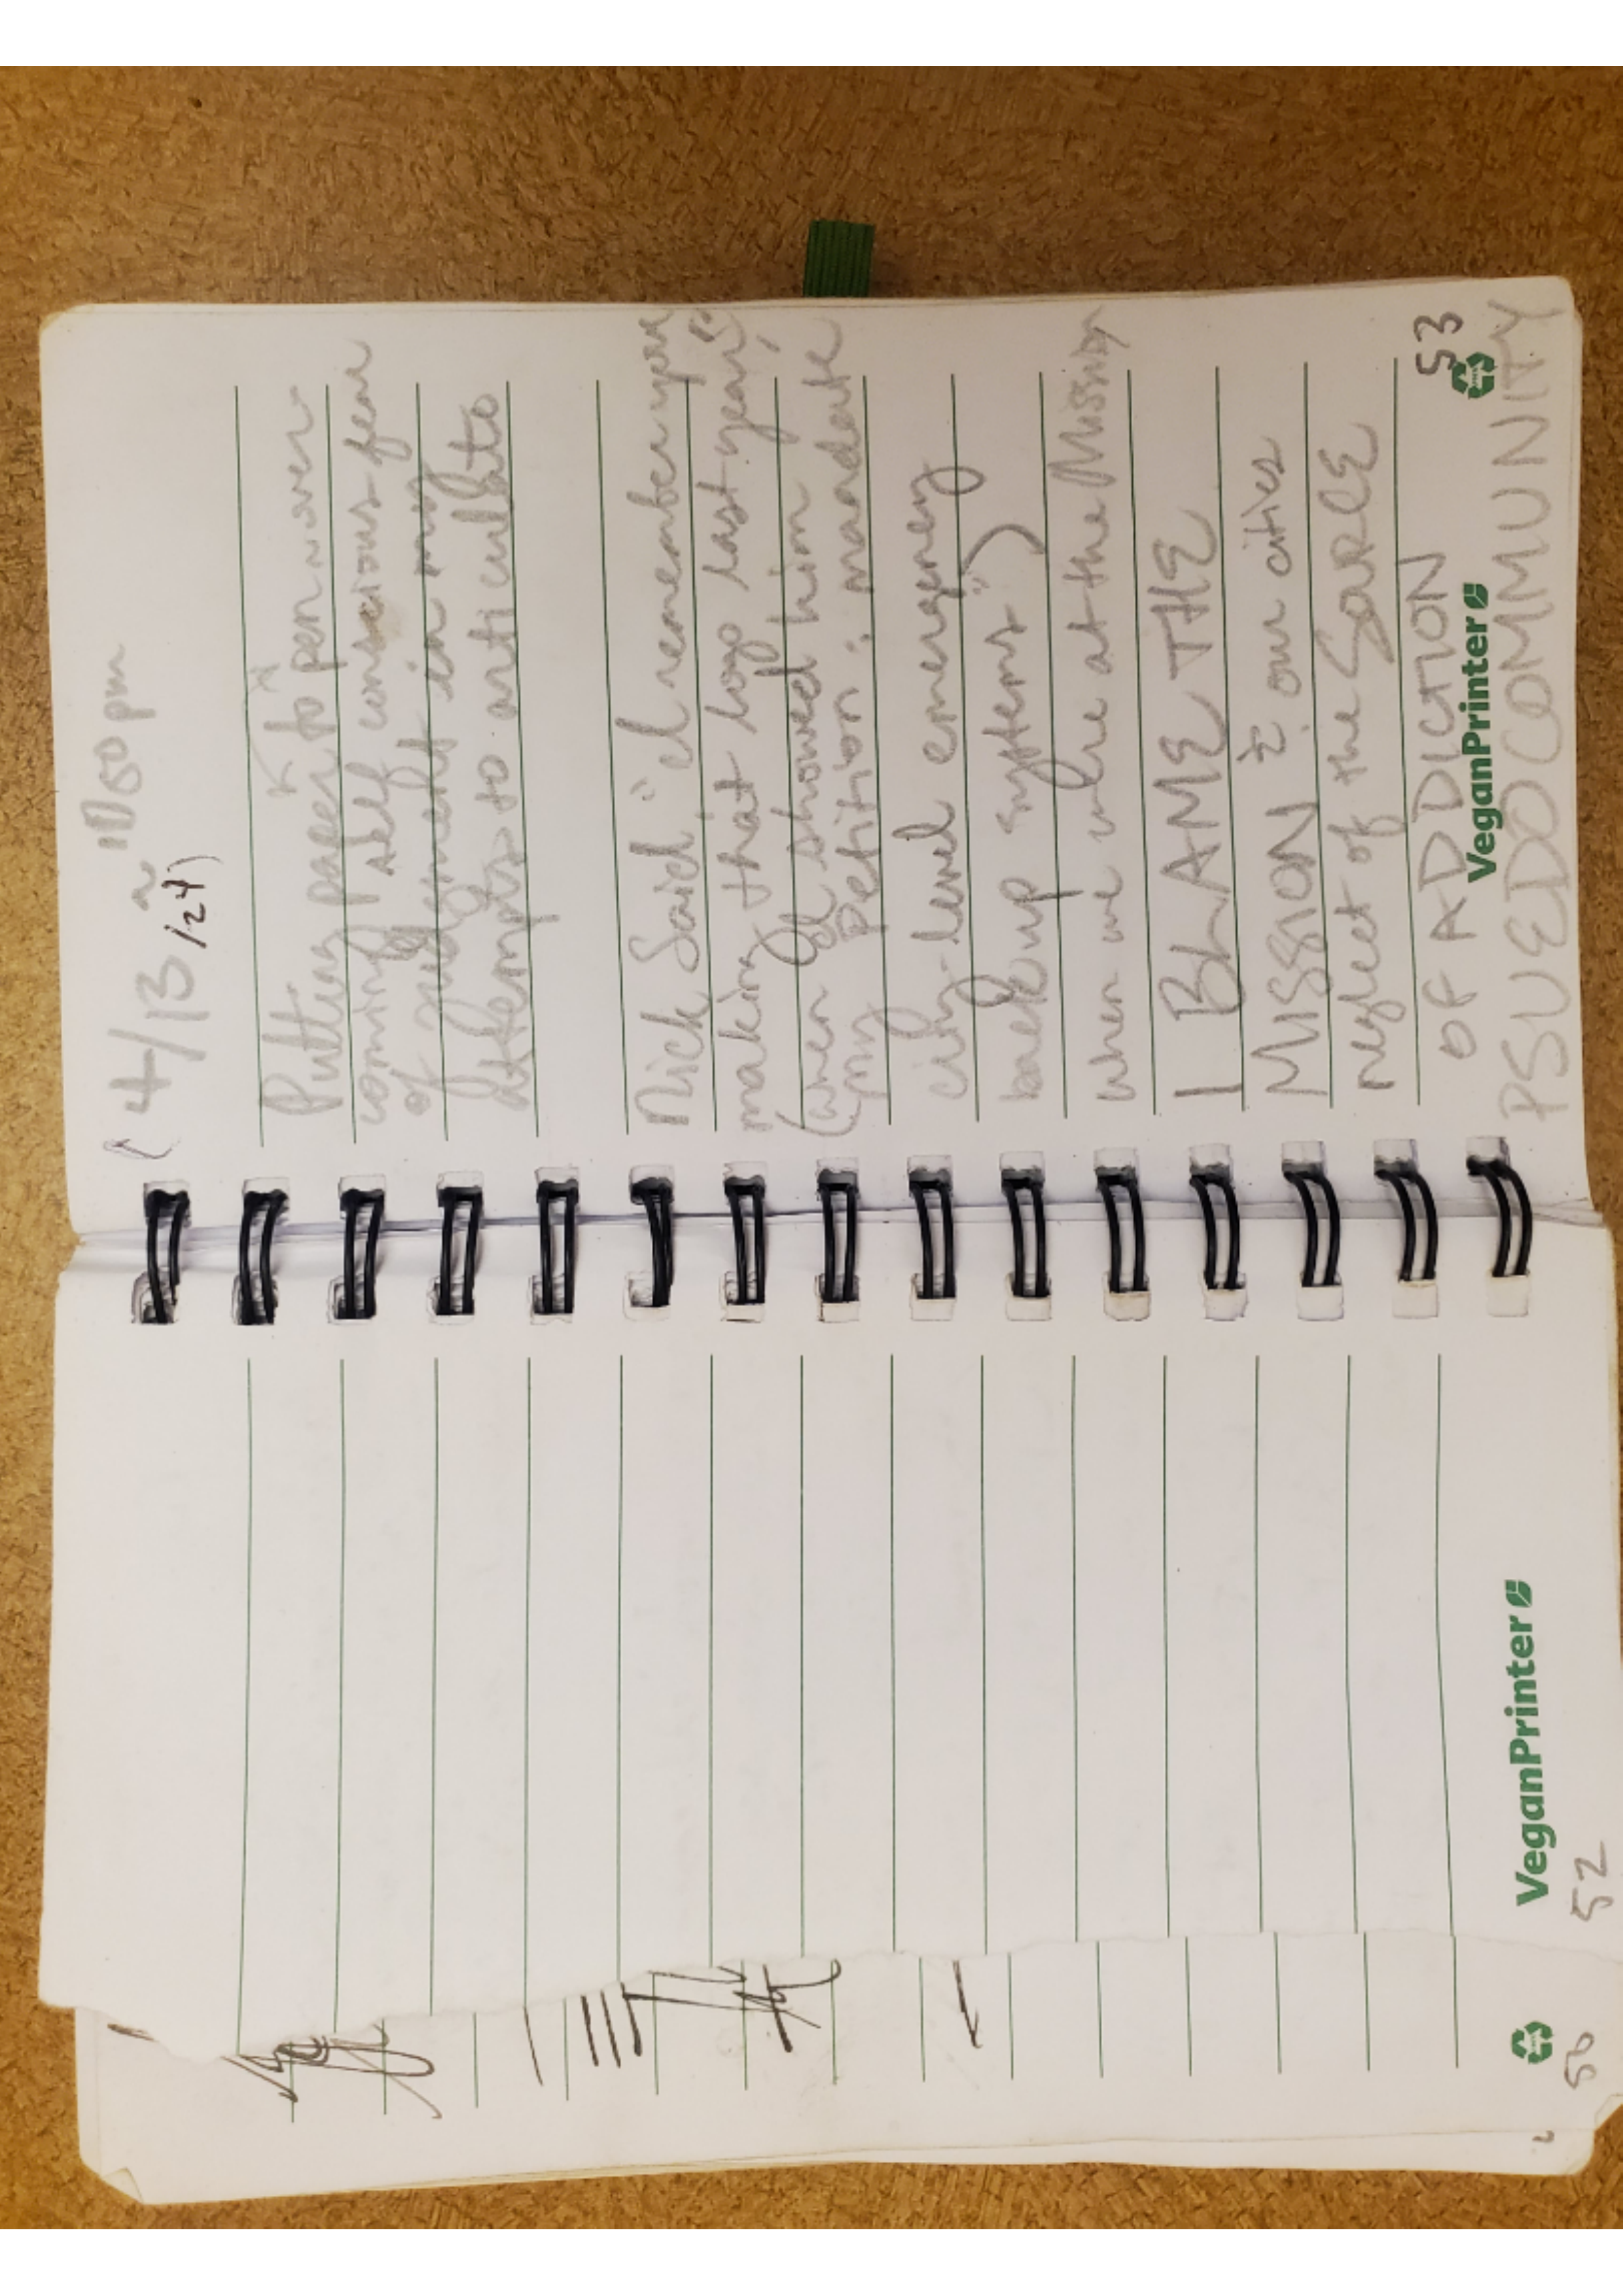 (4/13 ~ 11:50pm
/24)
Putting paper to pen over-
coming self conscious fear
of judgment in my
attempts to articulate
Nick Said, "I remember you
making that logo last year",
(when I showed him
my petition: mandate
city-level emergency
backup systems")
when we were at the Mission
I BLAME THE
MISSION & our cities
neglect of the SARLE
OF ADDICTION
53
VeganPrinter
PSUEDOCOMMUNITY
VeganPrinter
52
50